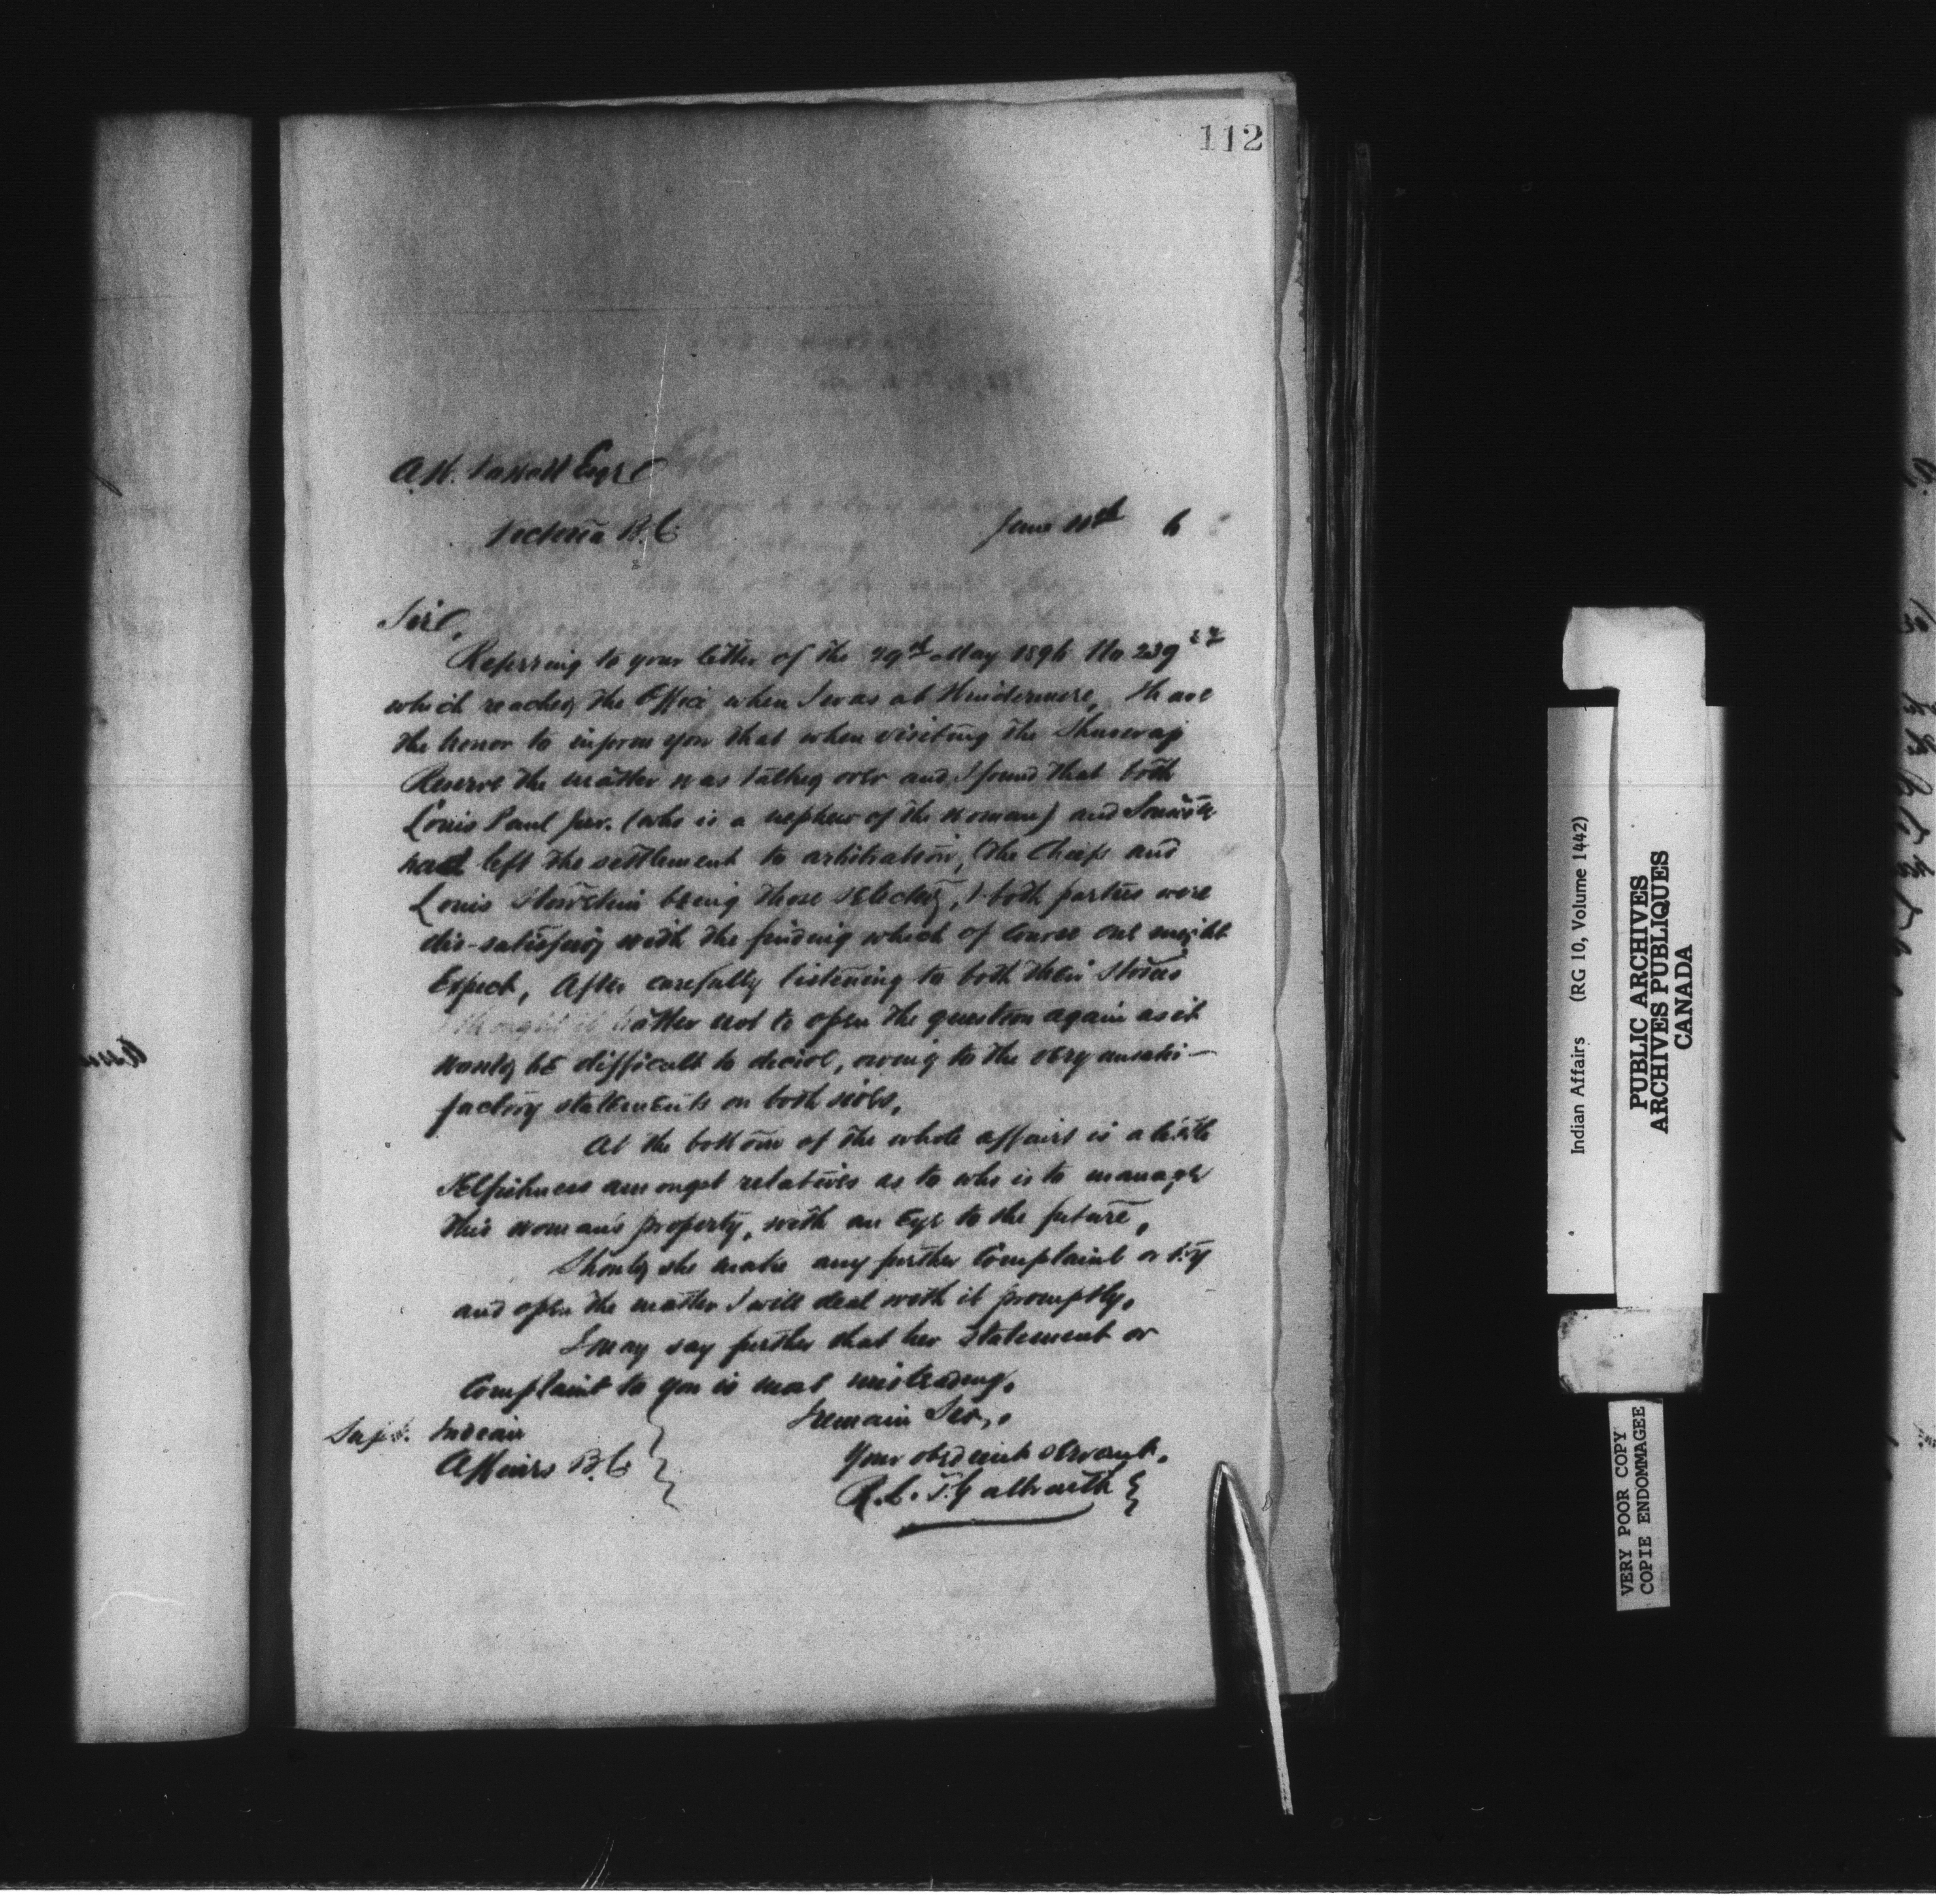 112
A.W. Vowell Esqre
Victoria B.C. June 6
Sir,
Referring to your letter of the 29th May 1896 No 239
which reached the Office when I was at Windermere, I have
the honor to inform you that when visiting the Shuswap
Reserve the matter was talked over and I found that both
Louis Paul Jnr. (who is a nephew of the woman) and
had left the settlement to arbitration, (the Chiefs and
Louis being those selected,) both parties were
dis-satisfied with the finding which of course one might
Expect, After carefully listening to both their stories
I thought it better not to open the question again as it
would be difficult to decide, owing to the very unsatis-
factory statements on both sides,
At the bottom of the whole affairs is a little
selfishness amongst relatives as to who is to manage
this woman's property, with an Eye to the future,
Should she make any further Complaint or try
and open the matter I will deal with it promptly.
I may say further that her Statement or
Complaint to you is most misleading.
I remain Sir,
Supt. Indian
Affairs B.C.
Your obedient servant.
R.L.T. Galbraith
Indian Affairs (RG 10, Volume 1442)
PUBLIC ARCHIVES
ARCHIVES PUBLIQUES
CANADA
VERY POOR COPY
COPIE ENDOMMAGEE